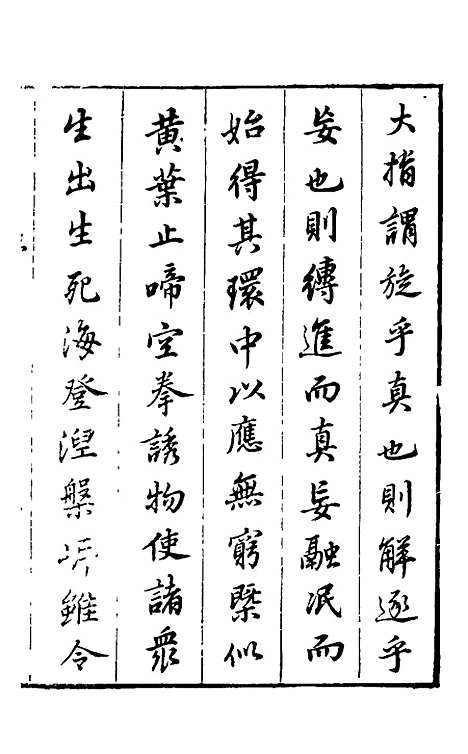 大指謂旋乎真也則解逐乎
妄也則縛進而真妄融泯而
始得其環中以應無窮槩似
黃葉止啼空拳誘物使諸衆
生出生死海登涅槃岸雖令